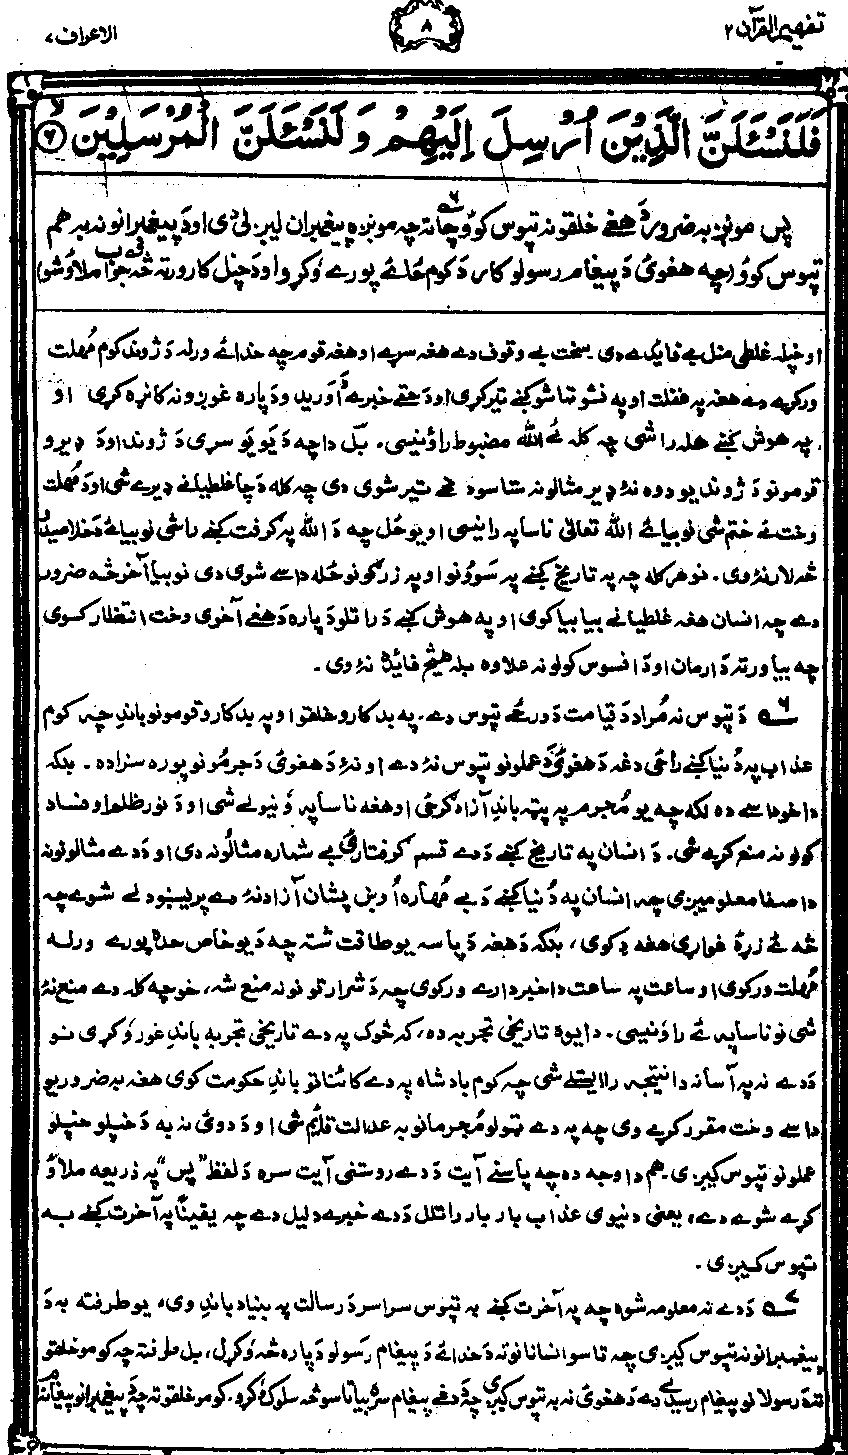 تفهيم القرآن ٢
٨
الاعراف ٧
فَلَنَسْـَٔلَنَّ الَّذِيْنَ اُرْسِلَ اِلَيْهِمْ وَلَنَسْـَٔلَنَّ الْمُرْسَلِيْنَ ۙ﴿۶﴾
پس مونږ به ضرور د هغے خلقو نه تپوس کوُو چاته چه مونږه پيغمبران ليږلی دی او د پيغمبرانو نه به هم
تپوس کوُو (چه هغوئ د پيغام رسولو کار د کوم ځائے پورے وکړو او د خپل کار ورته څه جواب ملاؤ شو)
او خپله غلطی منل بے فائدے دی۔ سخت بے وقوف دے هغه سړے او هغه قوم چه خدائے ورله د ژوند کوم مُهلت
ورکړے دے هغه په غفلت او په نشو تماشو کښے تير کړی او د حقے خبرے اَوريدو د پاره غوږونه کاڼه کړی او
په هوش کښے هله راشی چه کله ئے الله مضبوط راونيسی۔ بل دا چه د يو يو سړی د ژوند او د ډيرو
قومونو د ژوند يو دوه نۀ ډير مثالونه ستاسو د مخے تير شوی دی چه کله د چا غلطيانے ډيرے شی او د مُهلت
وخت ئے ختم شی نو بيا ئے الله تعالیٰ ناساپه رانيسی او يو ځل چه د الله په گرفت کښے راشی نو بيا ئے د خلاصيدو
څه لار نۀ وی۔ نو هر کله چه په تاريخ کښے په سوونو او په زرگونو ځله داسے شوی دی نو بيا آخر څه ضرور
دے چه انسان هغه غلطيانے بيا بيا کوی او په هوش کښے د راتلو د پاره د هغے آخری وخت انتظار کوی
چه بيا ورته د ارمان او د افسوس کولو نه علاوه بله هيڅ فائده نۀ وی۔
۶ د تپوس نه مُراد د قيامت د ورځے تپوس دے۔ په بدکارو خلقو او په بدکارو قومونو باندِ چه کوم
عذاب په دُنيا کښے راځی دغه د هغوئ د عملونو تپوس نۀ دے او نۀ د هغوئ د جرمونو پوره سزا ده۔ بلکه
دا خو داسے ده لکه چه يو مُجرم په پټه باندِ آزاد گرځی او هغه ناساپه ونيولے شی او د نور ظلم او فساد
کولو نه منع کړے شی۔ د انسان په تاريخ کښے د دے قسم گرفتارئ بے شماره مثالونه دی او د دے مثالونو نه
دا صفا معلوميږی چه انسان په دُنيا کښے د بے مُهاره اُوښ پشان آزاد نۀ دے پريښودلے شوے چه
څه ئے زړۀ غواړی هغه دِ کوی، بلکه د هغه د پاسه يو طاقت شته چه د يو خاص حده پورے ورله
مُهلت ورکوی او ساعت په ساعت دا خبردارے ورکوی چه د شرارتونو نه منع شه، خو چه کله دے منع نۀ
شی نو ناساپه ئے راونيسی۔ دا يوه تاريخی تجربه ده، که څوک په دے تاريخی تجربه باندِ غور وکړی نو
د دے نه په آسانه دا نتيجه راايستلے شی چه کوم بادشاه په دے کائناتو باندِ حکومت کوی هغه به ضرور يو
داسے وخت مقرر کړے وی چه په دے ټولو مُجرمانو به عدالت قائم شی او د دوئ نه به د خپلو خپلو
عملونو تپوس کيږی۔ هم دا وجه ده چه پاسنے آيت د دے روستنی آيت سره د لفظ ”پس“ په ذريعه ملاؤ
کړے شوے دے، يعنی دنيوی عذاب بار بار راتلل د دے خبرے دليل دے چه يقيناً په آخرت کښے به
تپوس کيږی۔
۷ د دے نه معلومه شوه چه په آخرت کښے به تپوس سراسر د رسالت په بنياد باندِ وی، يو طرفته به د
پيغمبرانو نه تپوس کيږی چه تاسو انسانانو ته د خدائے د پيغام رسولو د پاره څه وکړل، بل طرفته چه کومو خلقو
ته د رسولانو پيغام رسيدلے دے د هغوئ نه به تپوس کيږی چه د دغے پيغام سره بيا تاسو څه سلوک وکړو۔ کومو خلقو ته چه د پيغمبرانو پيغام نۀ